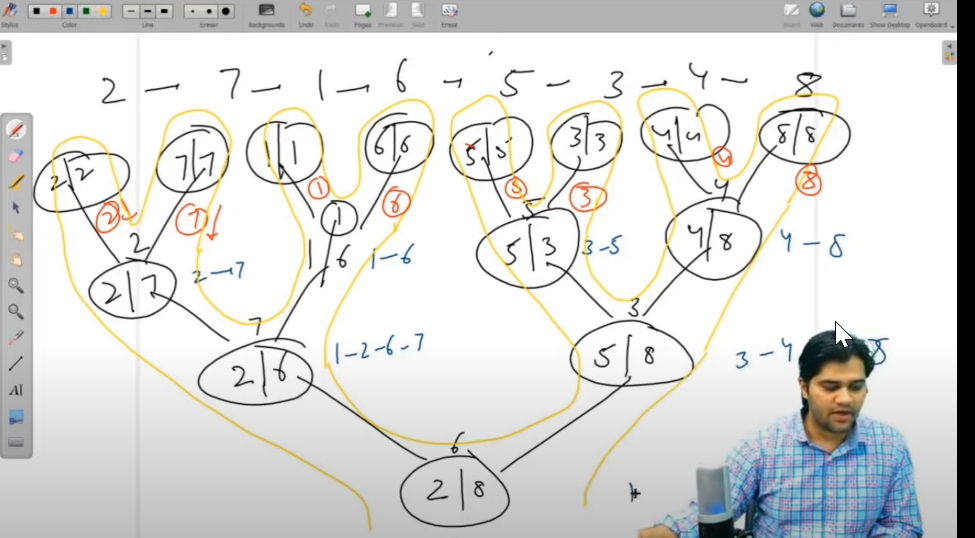 Stylus Color Line Eraser Backgrounds Undo Redo Pages Previous Next Erase Board Web Documents Show Desktop OpenBoard
2 → 7 → 1 → 6 → 5 → 3 → 4 → 8
2|2 7|7 1|1 6|6 5|5 3|3 4|4 8|8
2 7 1 6 5 3 4 8
2 1 5 4
2|7 2→7 1|6 1-6 5|3 3-5 4|8 4-8
7 3
2|6 1-2-6-7 5|8 3-4 8
6
2|8
AI